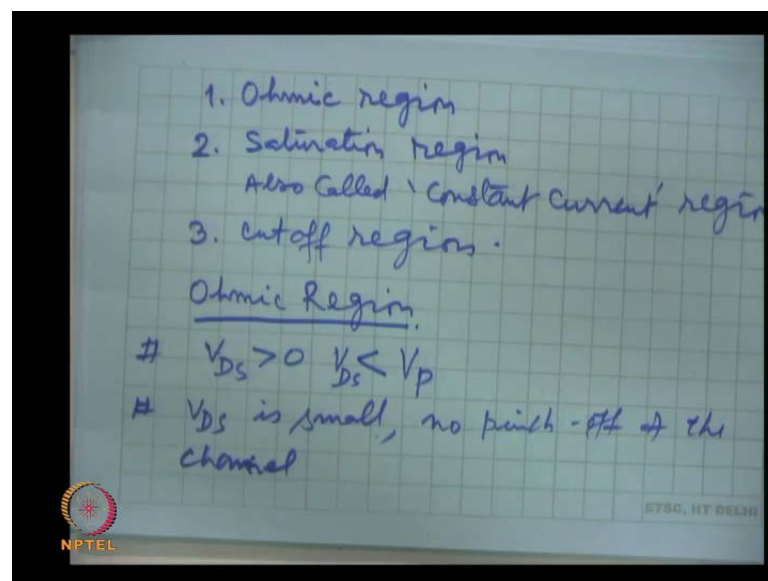 1. Ohmic region
2. Saturation region
Also Called 'Constant Current' region
3. cutoff region.
Ohmic Region.
# V_DS > 0 V_DS < V_P
# V_DS is small, no pinch-off of the
channel
ETSC, IIT DELHI
NPTEL